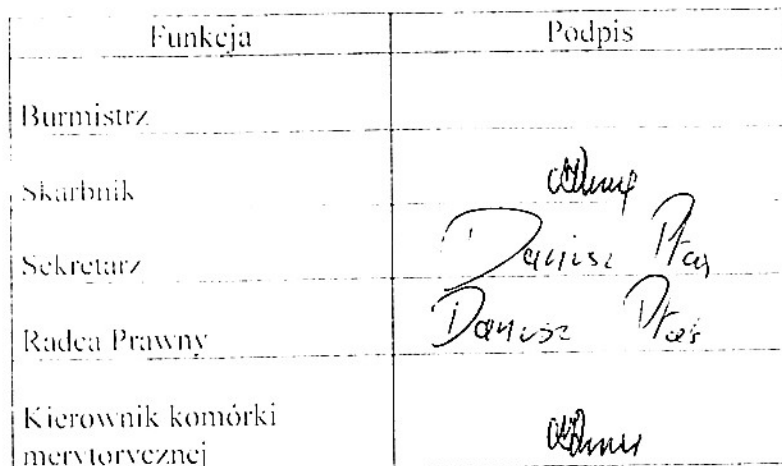 Funkcja Podpis
Burmistrz
Skarbnik
Sekretarz Dariusz Ptak
Radca Prawny Dariusz Ptak
Kierownik komórki
merytorycznej